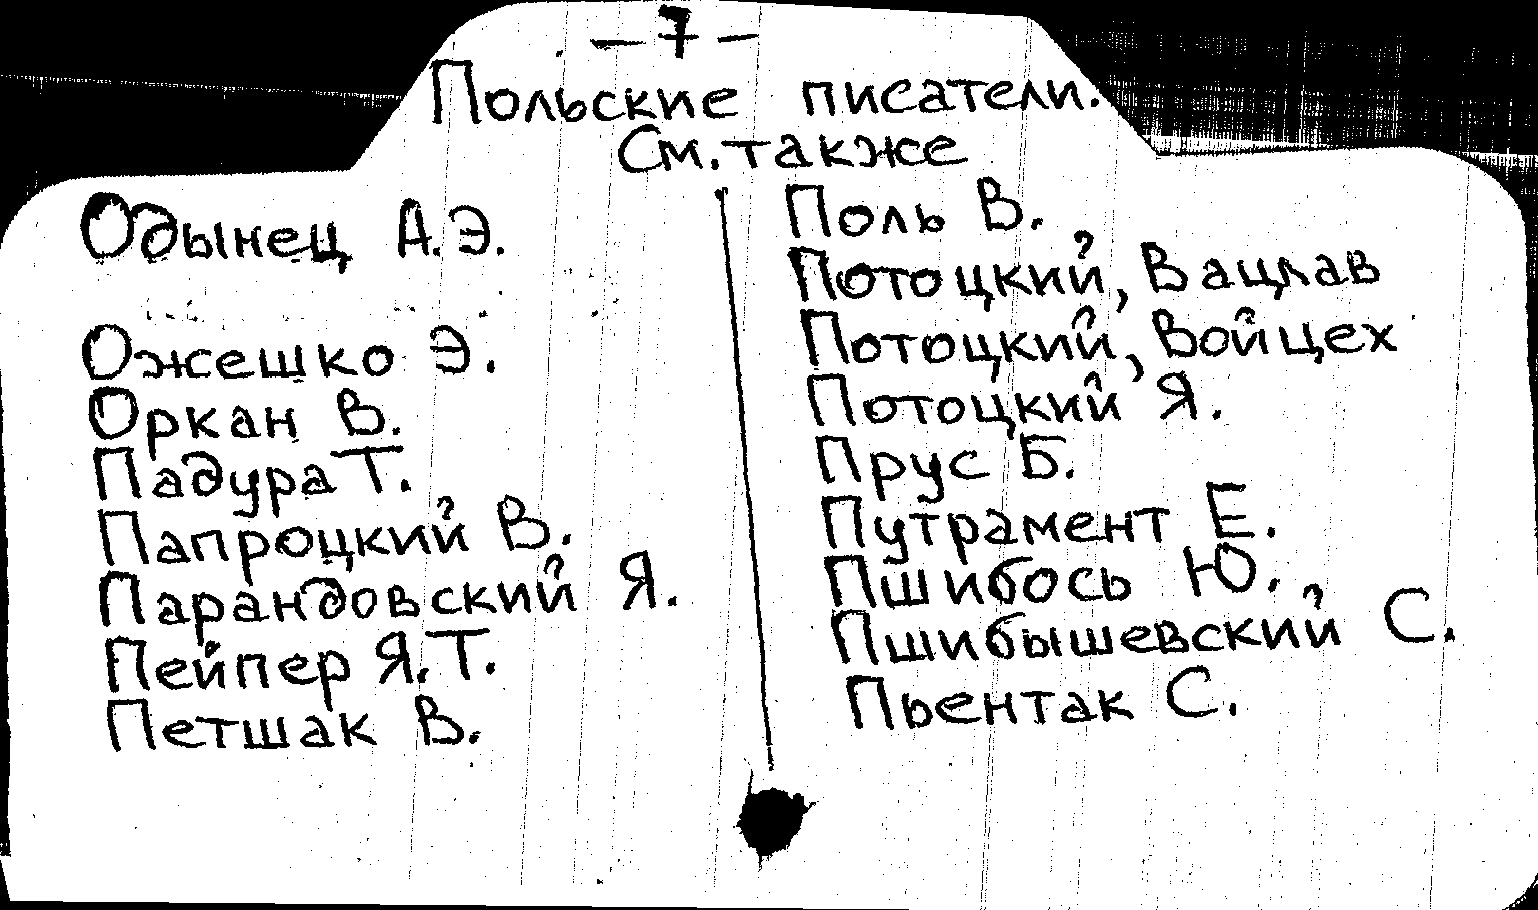 — 7 —
Польские писатели.
См. также
Одынец А.Э.
Ожешко Э.
Оркан В.
Падура Т.
Папроцкий В.
Парандовский Я.
Пейпер Я.Т.
Петшак В.
Поль В.
Потоцкий, Вацлав
Потоцкий, Войцех
Потоцкий Я.
Прус Б.
Путрамент Е.
Пшибось Ю.
Пшибышевский С.
Пьентак С.